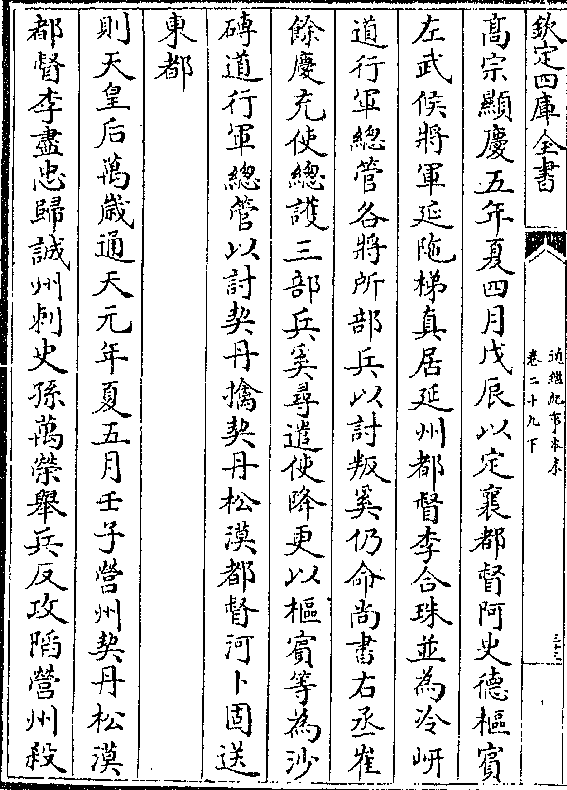 欽定四庫全書
通鑑紀事本末
卷二十九下
三三
高宗顯慶五年夏四月戊辰以定襄都督阿史德樞賓
左武侯將軍延陁梯真居延州都督李合珠並為冷岍
道行軍總管各將所部兵以討叛奚仍命尚書右丞崔
餘慶充使總護三部兵奚尋遣使降更以樞賓等為沙
磚道行軍總管以討契丹擒契丹松漠都督阿卜固送
東都
則天皇后萬歲通天元年夏五月壬子營州契丹松漠
都督李盡忠歸誠州刺史孫萬榮舉兵反攻陷營州殺